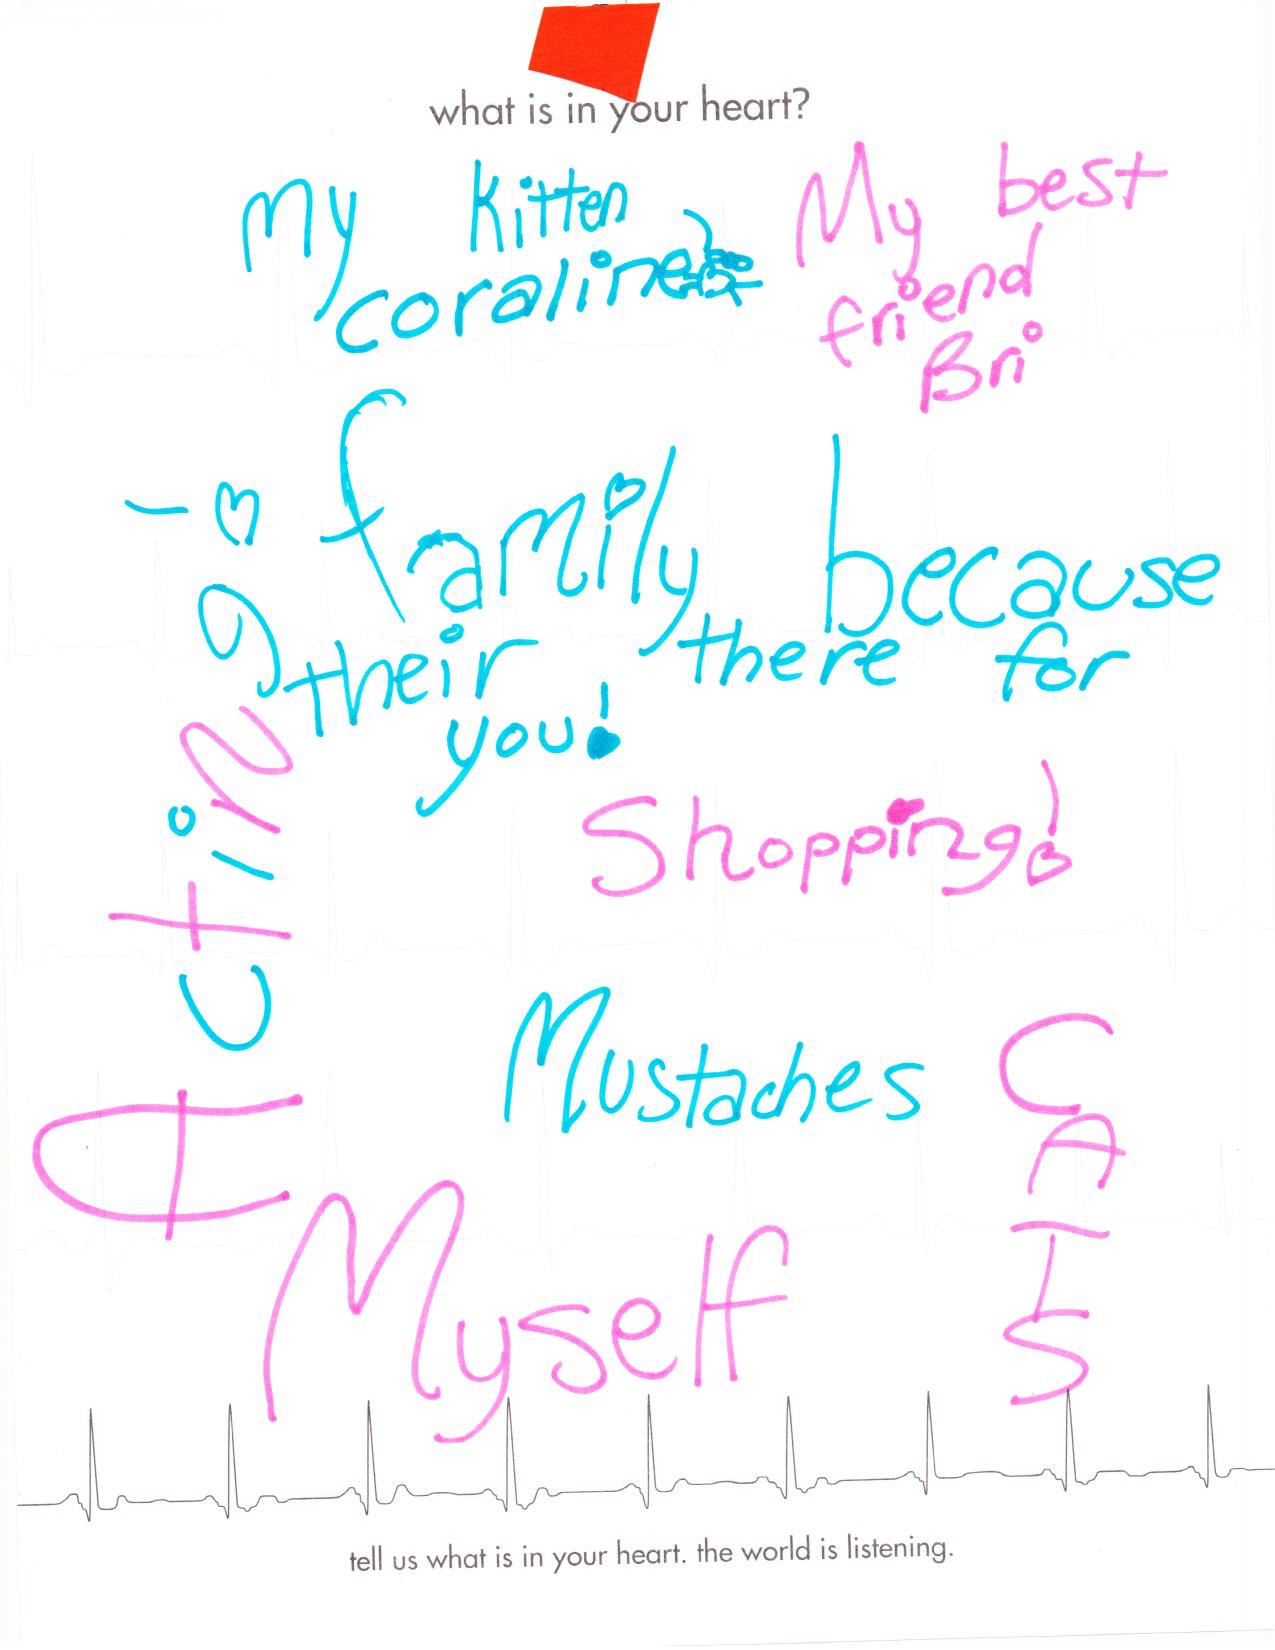 what is in your heart?
my kitten
coraline!
My best
friend
Bri
family because
their there for
you!
Acting!
Shopping!
Mustaches
CATS
Myself
tell us what is in your heart. the world is listening.